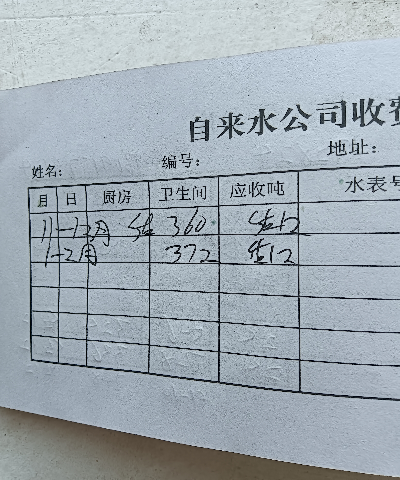 自来水公司收
姓名： 编号： 地址：
月 日 厨房 卫生间 应收吨 水表号
11-12月 360 12
1-2月 372 12